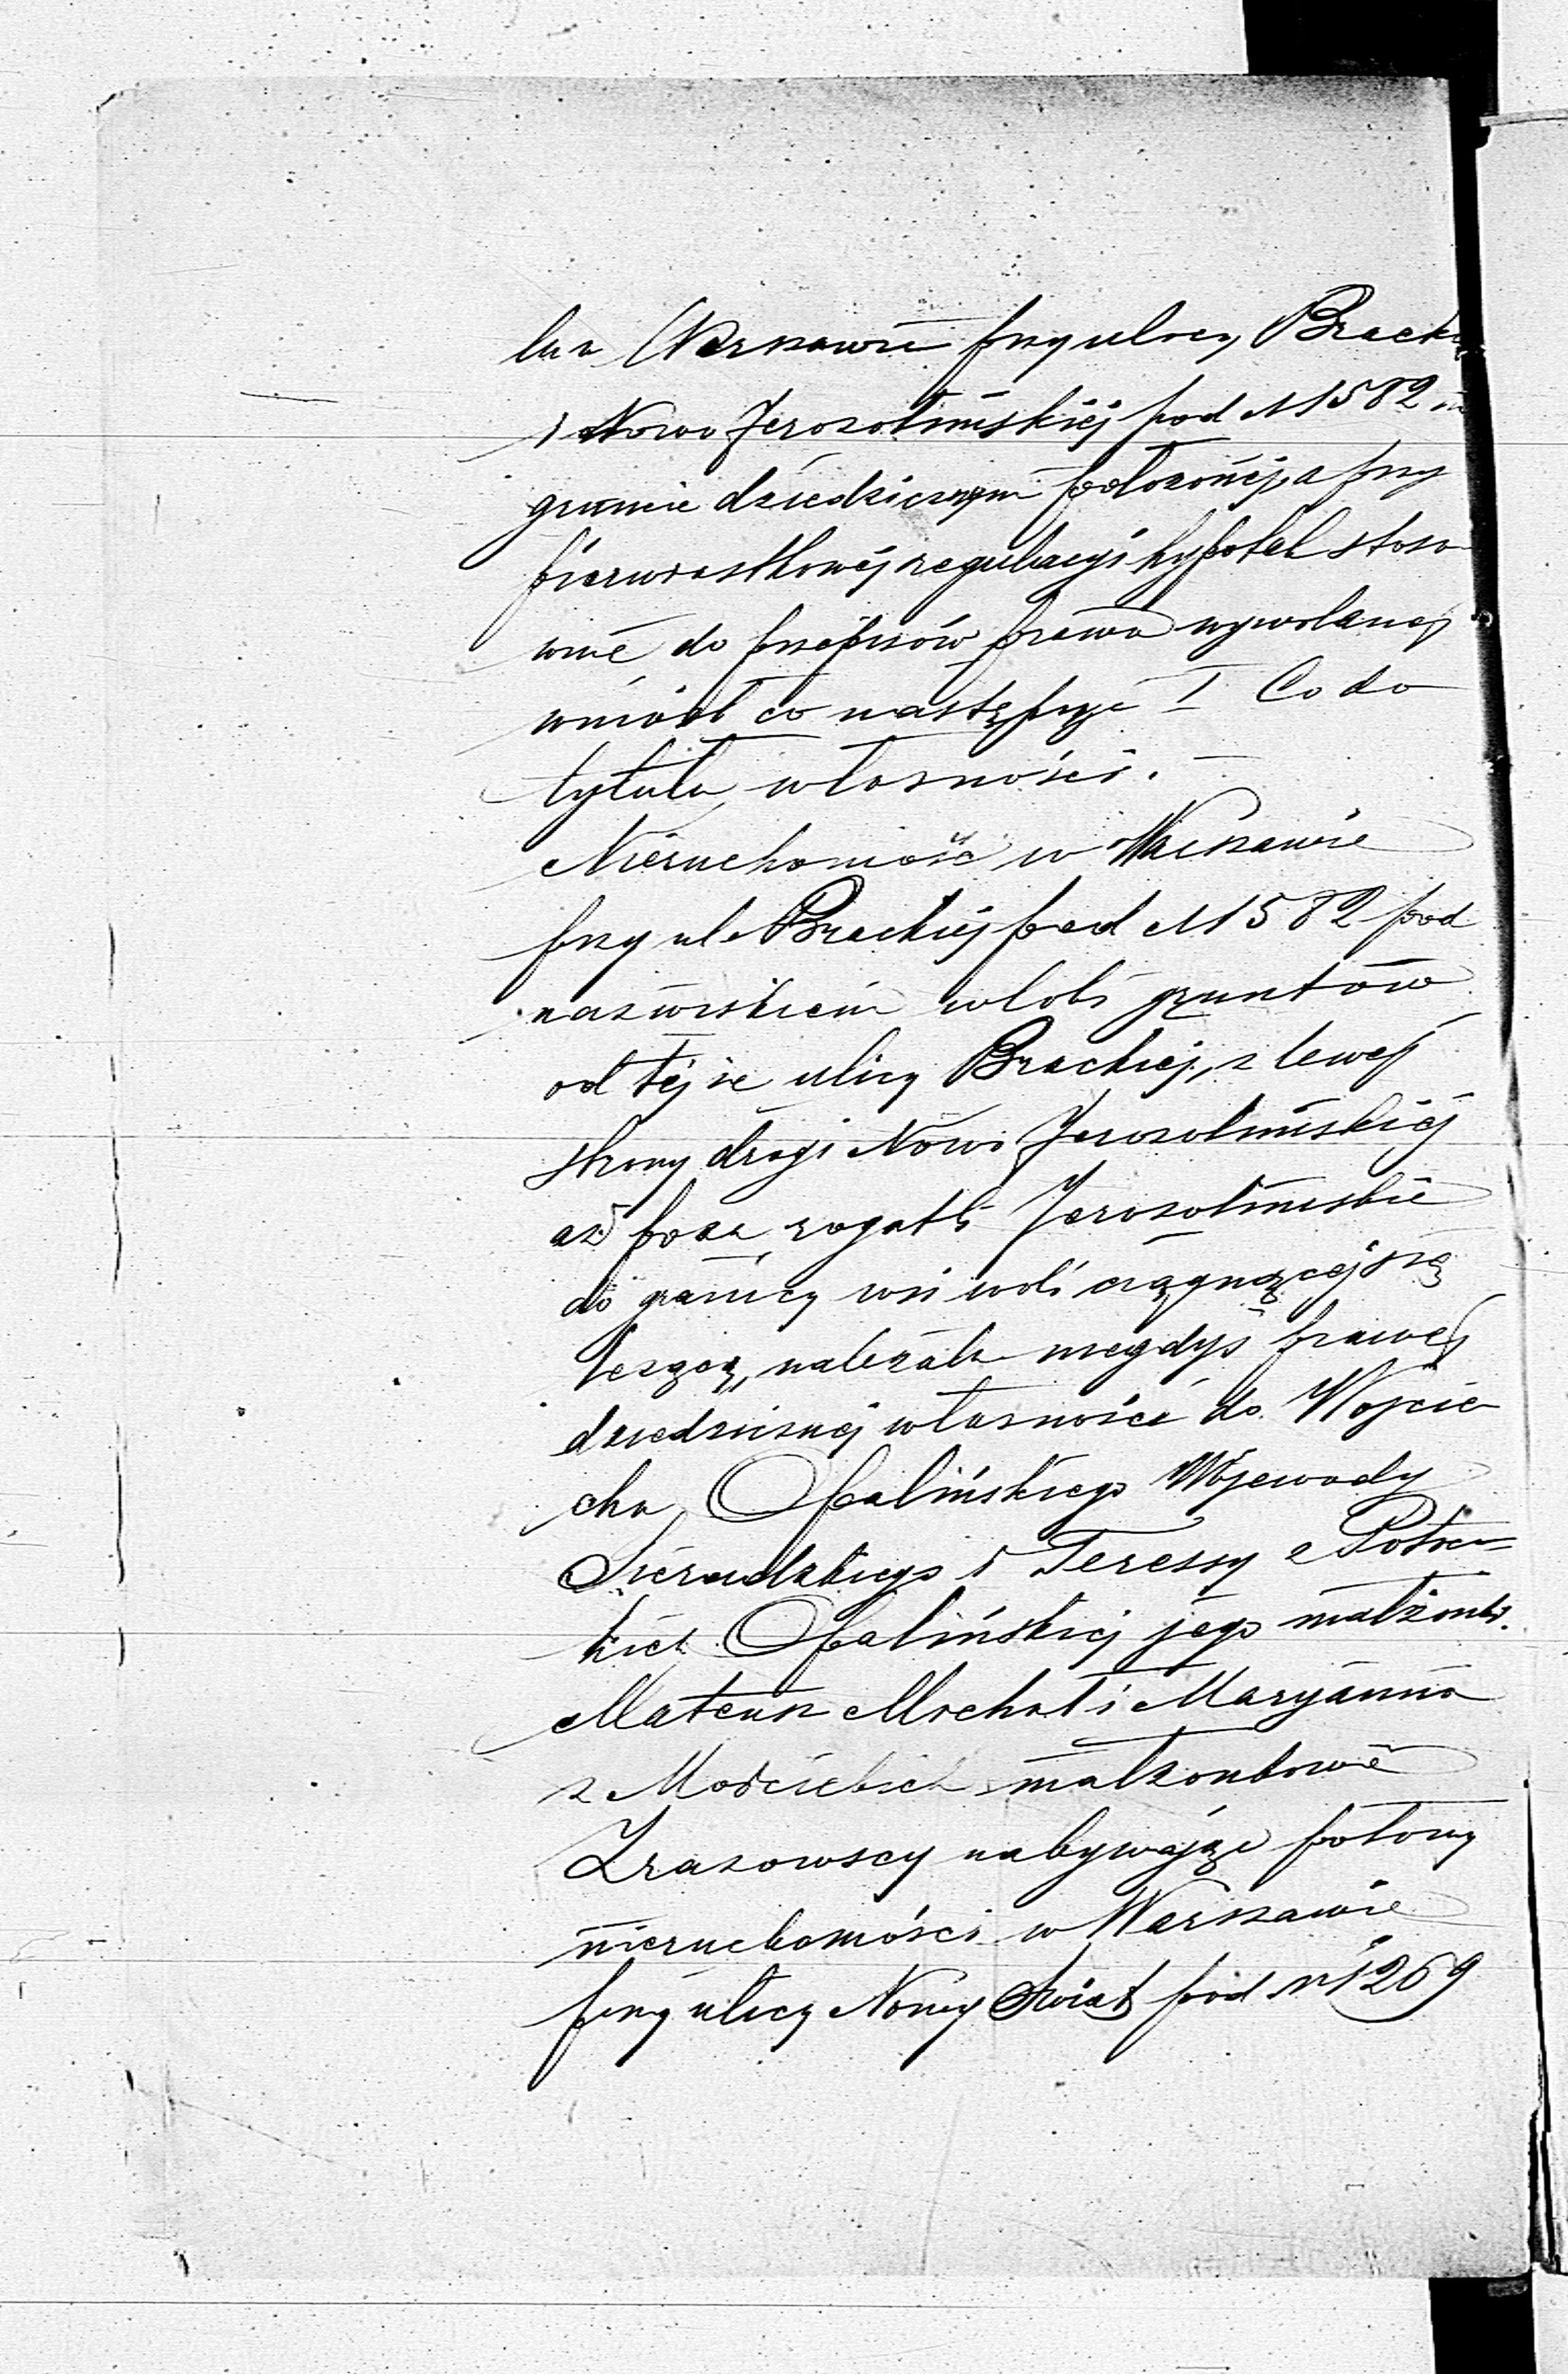 w Warszawie przy ulicy Brackiej
i Nowo Jerozolimskiej pod N 1582 na
gruncie dziedzicznym położonej, a przy
pierwiastkowej regulacyi hypotek stoso
wnie do przepisów prawa wywołanej
wniósł co następuje I Co do
tytułu własności.
Nieruchomość w Warszawie
przy ul. Brackiej pod N 1582 pod
nazwiskiem włoki gruntów
od tejże ulicy Brackiej, z lewej
strony drogi Nowo Jerozolimskiej
aż poza rogatki Jerozolimskie
do granicy wsi woli ciągnącej się
leżącą, należała niegdyś prawej
dziedzicznej własności do Wojcie
cha Opalińskiego Wojewody
Sieradzkiego i Teressy z Potoc=
kich Opalińskiej jego małżonki.
Mateusz Michał i Maryanna
z Mościckich małżonkowie
Zrazowscy nabywając połowy
nieruchomości w Warszawie
przy ulicy Nowy Świat pod N 1269